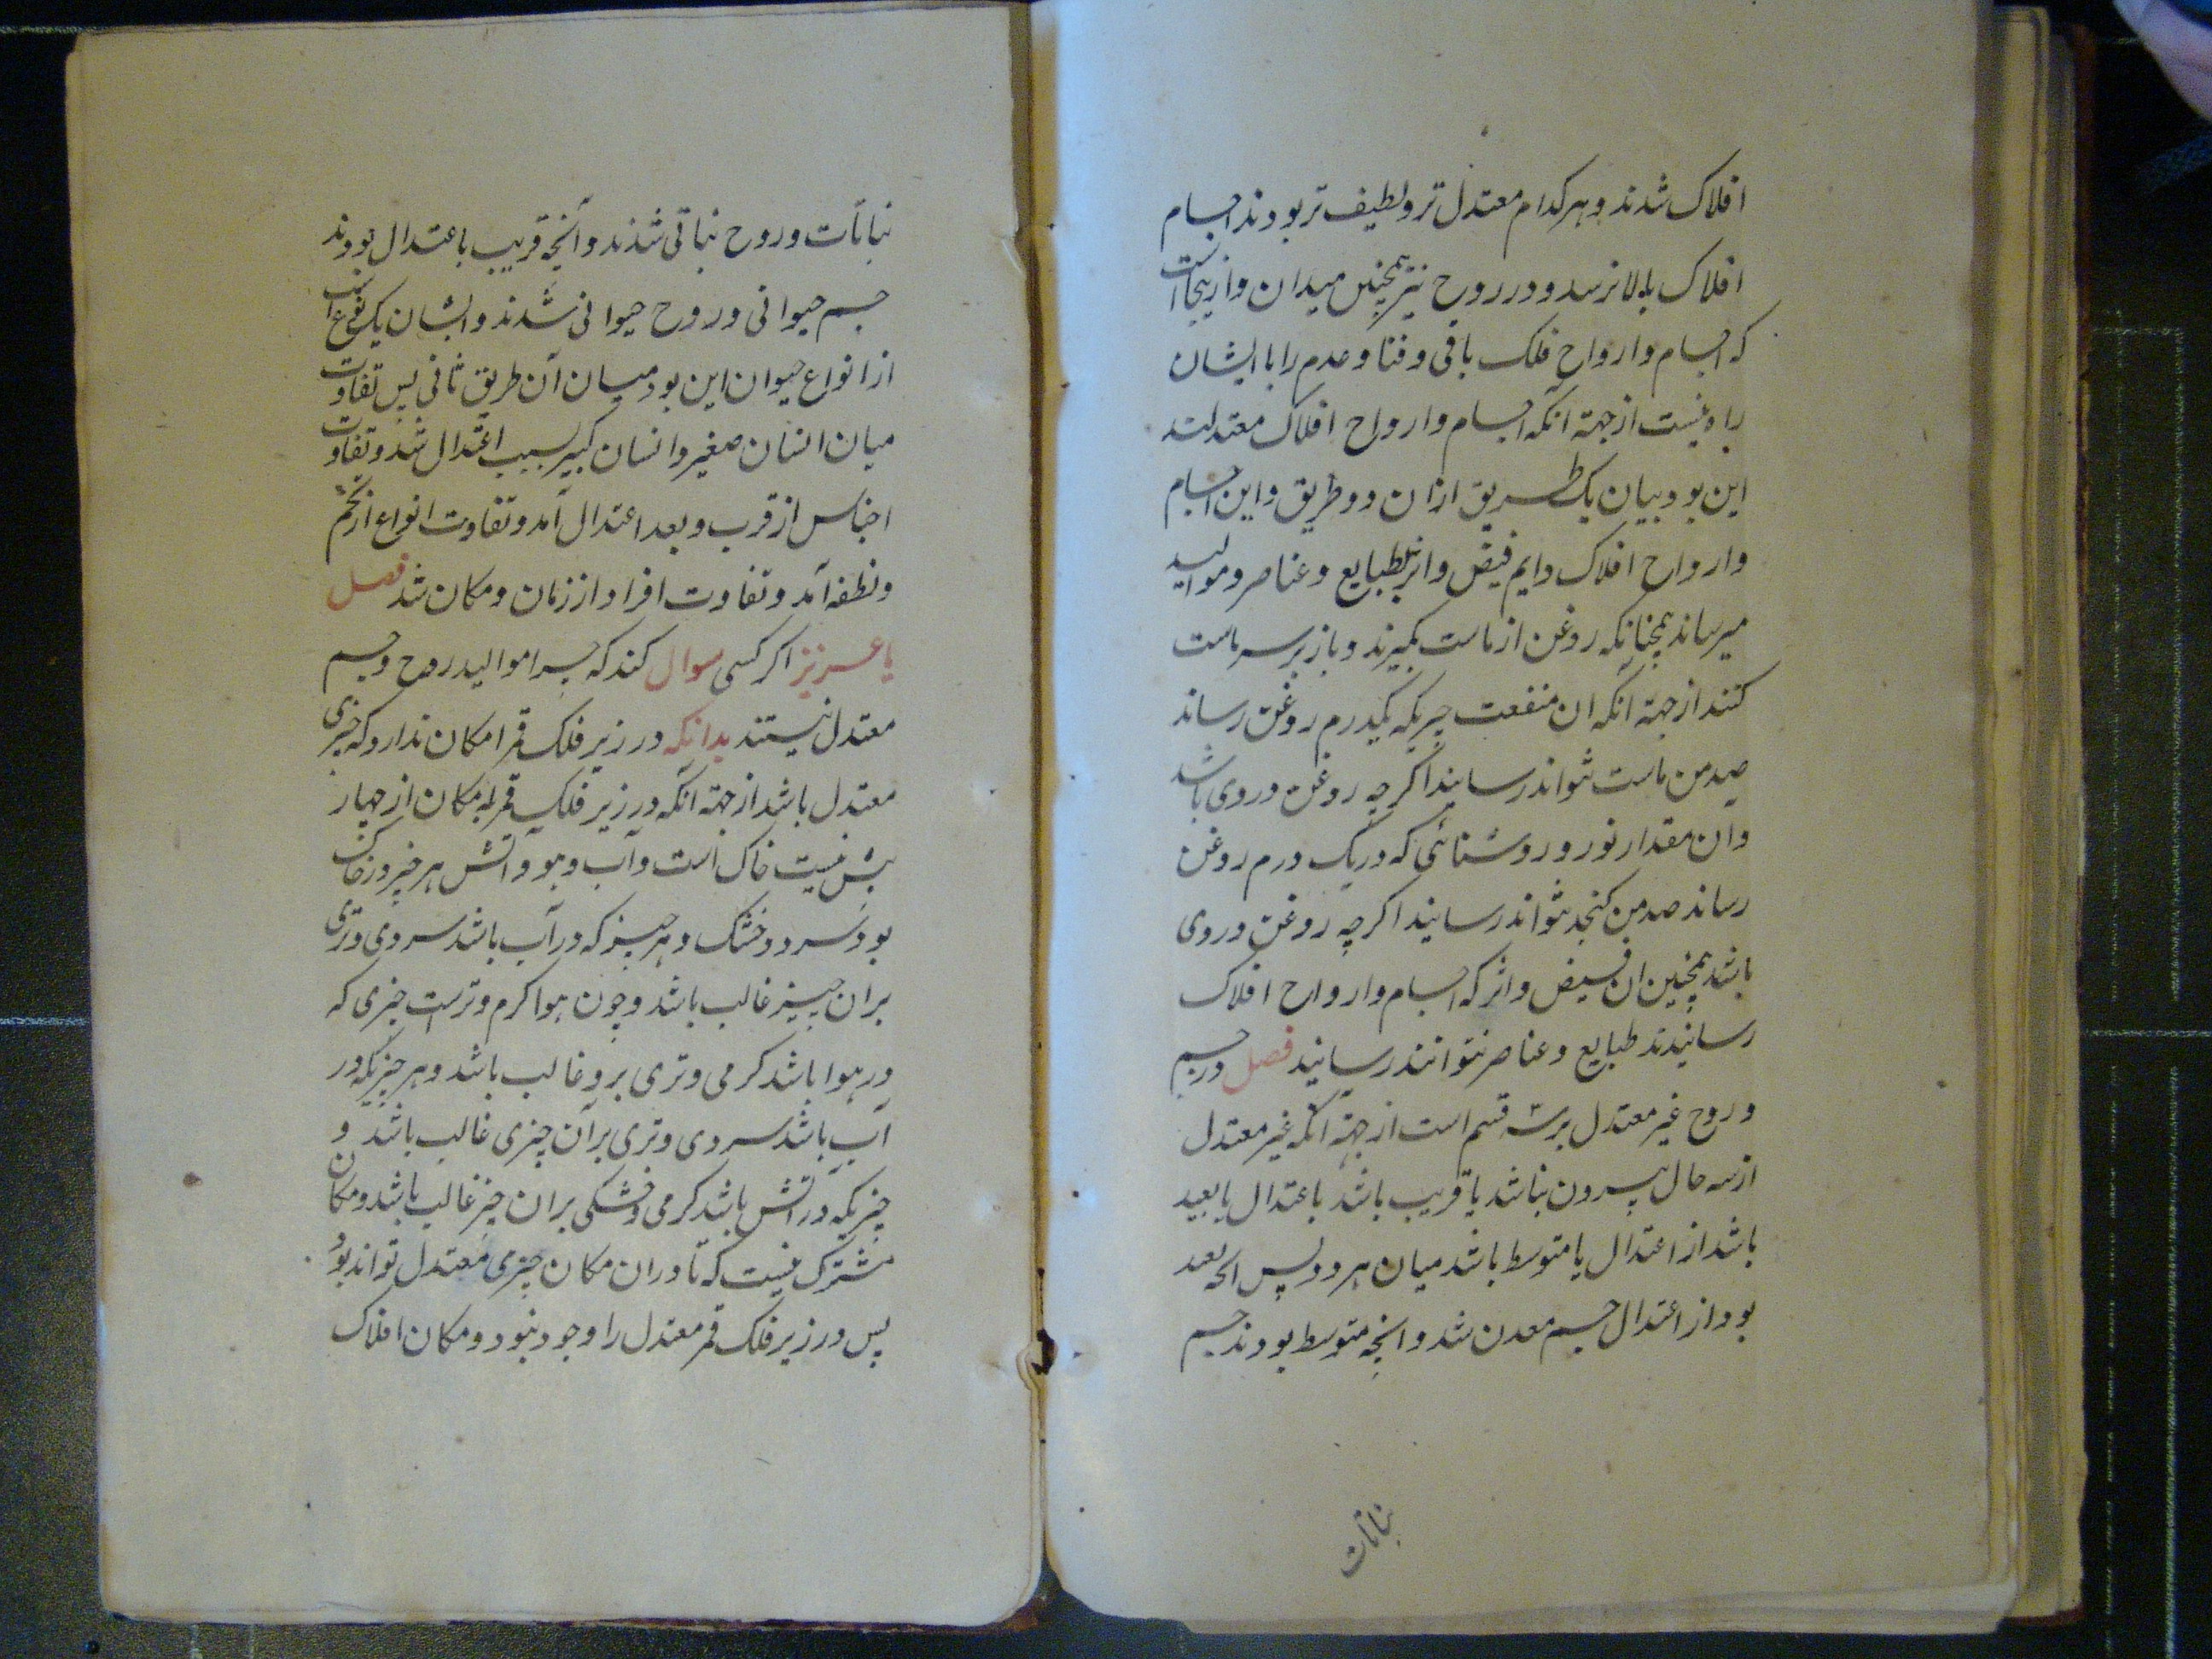 افلاک شدند و هر کدام معتدل تر و لطیف تر بودند اجسام
افلاک بالا نرسد و در روح نیز همچنین میدان و از اینجا است
که اجسام و ارواح فلک باقی و فنا و عدم را با ایشان
راه نیست از جهة آنکه اجسام و ارواح افلاک معتدلند
این بود بیان یک طریق ازان دو طریق و این اجسام
و ارواح افلاک دایم فیض و اثر بطبایع و عناصر و موالید
میرساند همچنانکه روغن از ماست بگیرند و باز بر سر ماست
کنند از جهة آنکه ان منفعت چربکه یکدرم روغن رساند
صد من ماست نتواند رسانید اگرچه روغن در وی باشد
و آن مقدار نور و روشنائی که در یک درم روغن
رساند صد من کنجد نتواند رسانید اگرچه روغن در وی
باشد همچنین ان فیض و اثر که اجسام و ارواح افلاک
رسانیدند طبایع و عناصر نتوانند رسانید فصل در جسم
و روح غیر معتدل بر سه قسم است از جهة آنکه غیر معتدل
از سه حال بیرون نباشد یا قریب باشد باعتدال یا بعید
باشد از اعتدال یا متوسط باشد میان هر دو پس انکه بعید
بود از اعتدال جسم معدن شد و انچه متوسط بودند جسم
نباتات
نباتات و روح نباتی شدند و آنچه قریب باعتدال بودند
جسم حیوانی و روح حیوانی شدند و انسان یک نوع است
از انواع حیوان این بود میان آن طریق ثانی پس تفاوت
میان انسان صغیر و انسان کبیر بسبب اعتدال شد و تفاوت
اجناس از قرب و بعد اعتدال آمد و تفاوت انواع از تخم
و نطفه آمد و تفاوت افراد از زمان و مکان شد فصل
یا عزیز اکر کسی سوال کند که چرا موالید روح و جسم
معتدل نیستند بدانکه در زیر فلک قمر امکان ندارد که چیزی
معتدل باشد از جهة آنکه در زیر فلک قمر مکان از چهار
بیش نیست خاک است و آب و هوا و آتش هر چیز در خاک
بود سرد و خشک و هر چیز که در آب باشد سردی و تری
بران چیز غالب باشد و چون هوا کرم و ترست چیزی که
در هوا باشد کرمی و تری برو غالب باشد و هر چیزیکه در
آب باشد سردی و تری بر آن چیزی غالب باشد و
چیزیکه در آتش باشد کرمی و خشکی بران چیز غالب باشد و مکان
مشترک نیست که تا دران مکان چیزی معتدل تواند بود
پس در زیر فلک قمر معتدل را وجود نبود و مکان افلاک